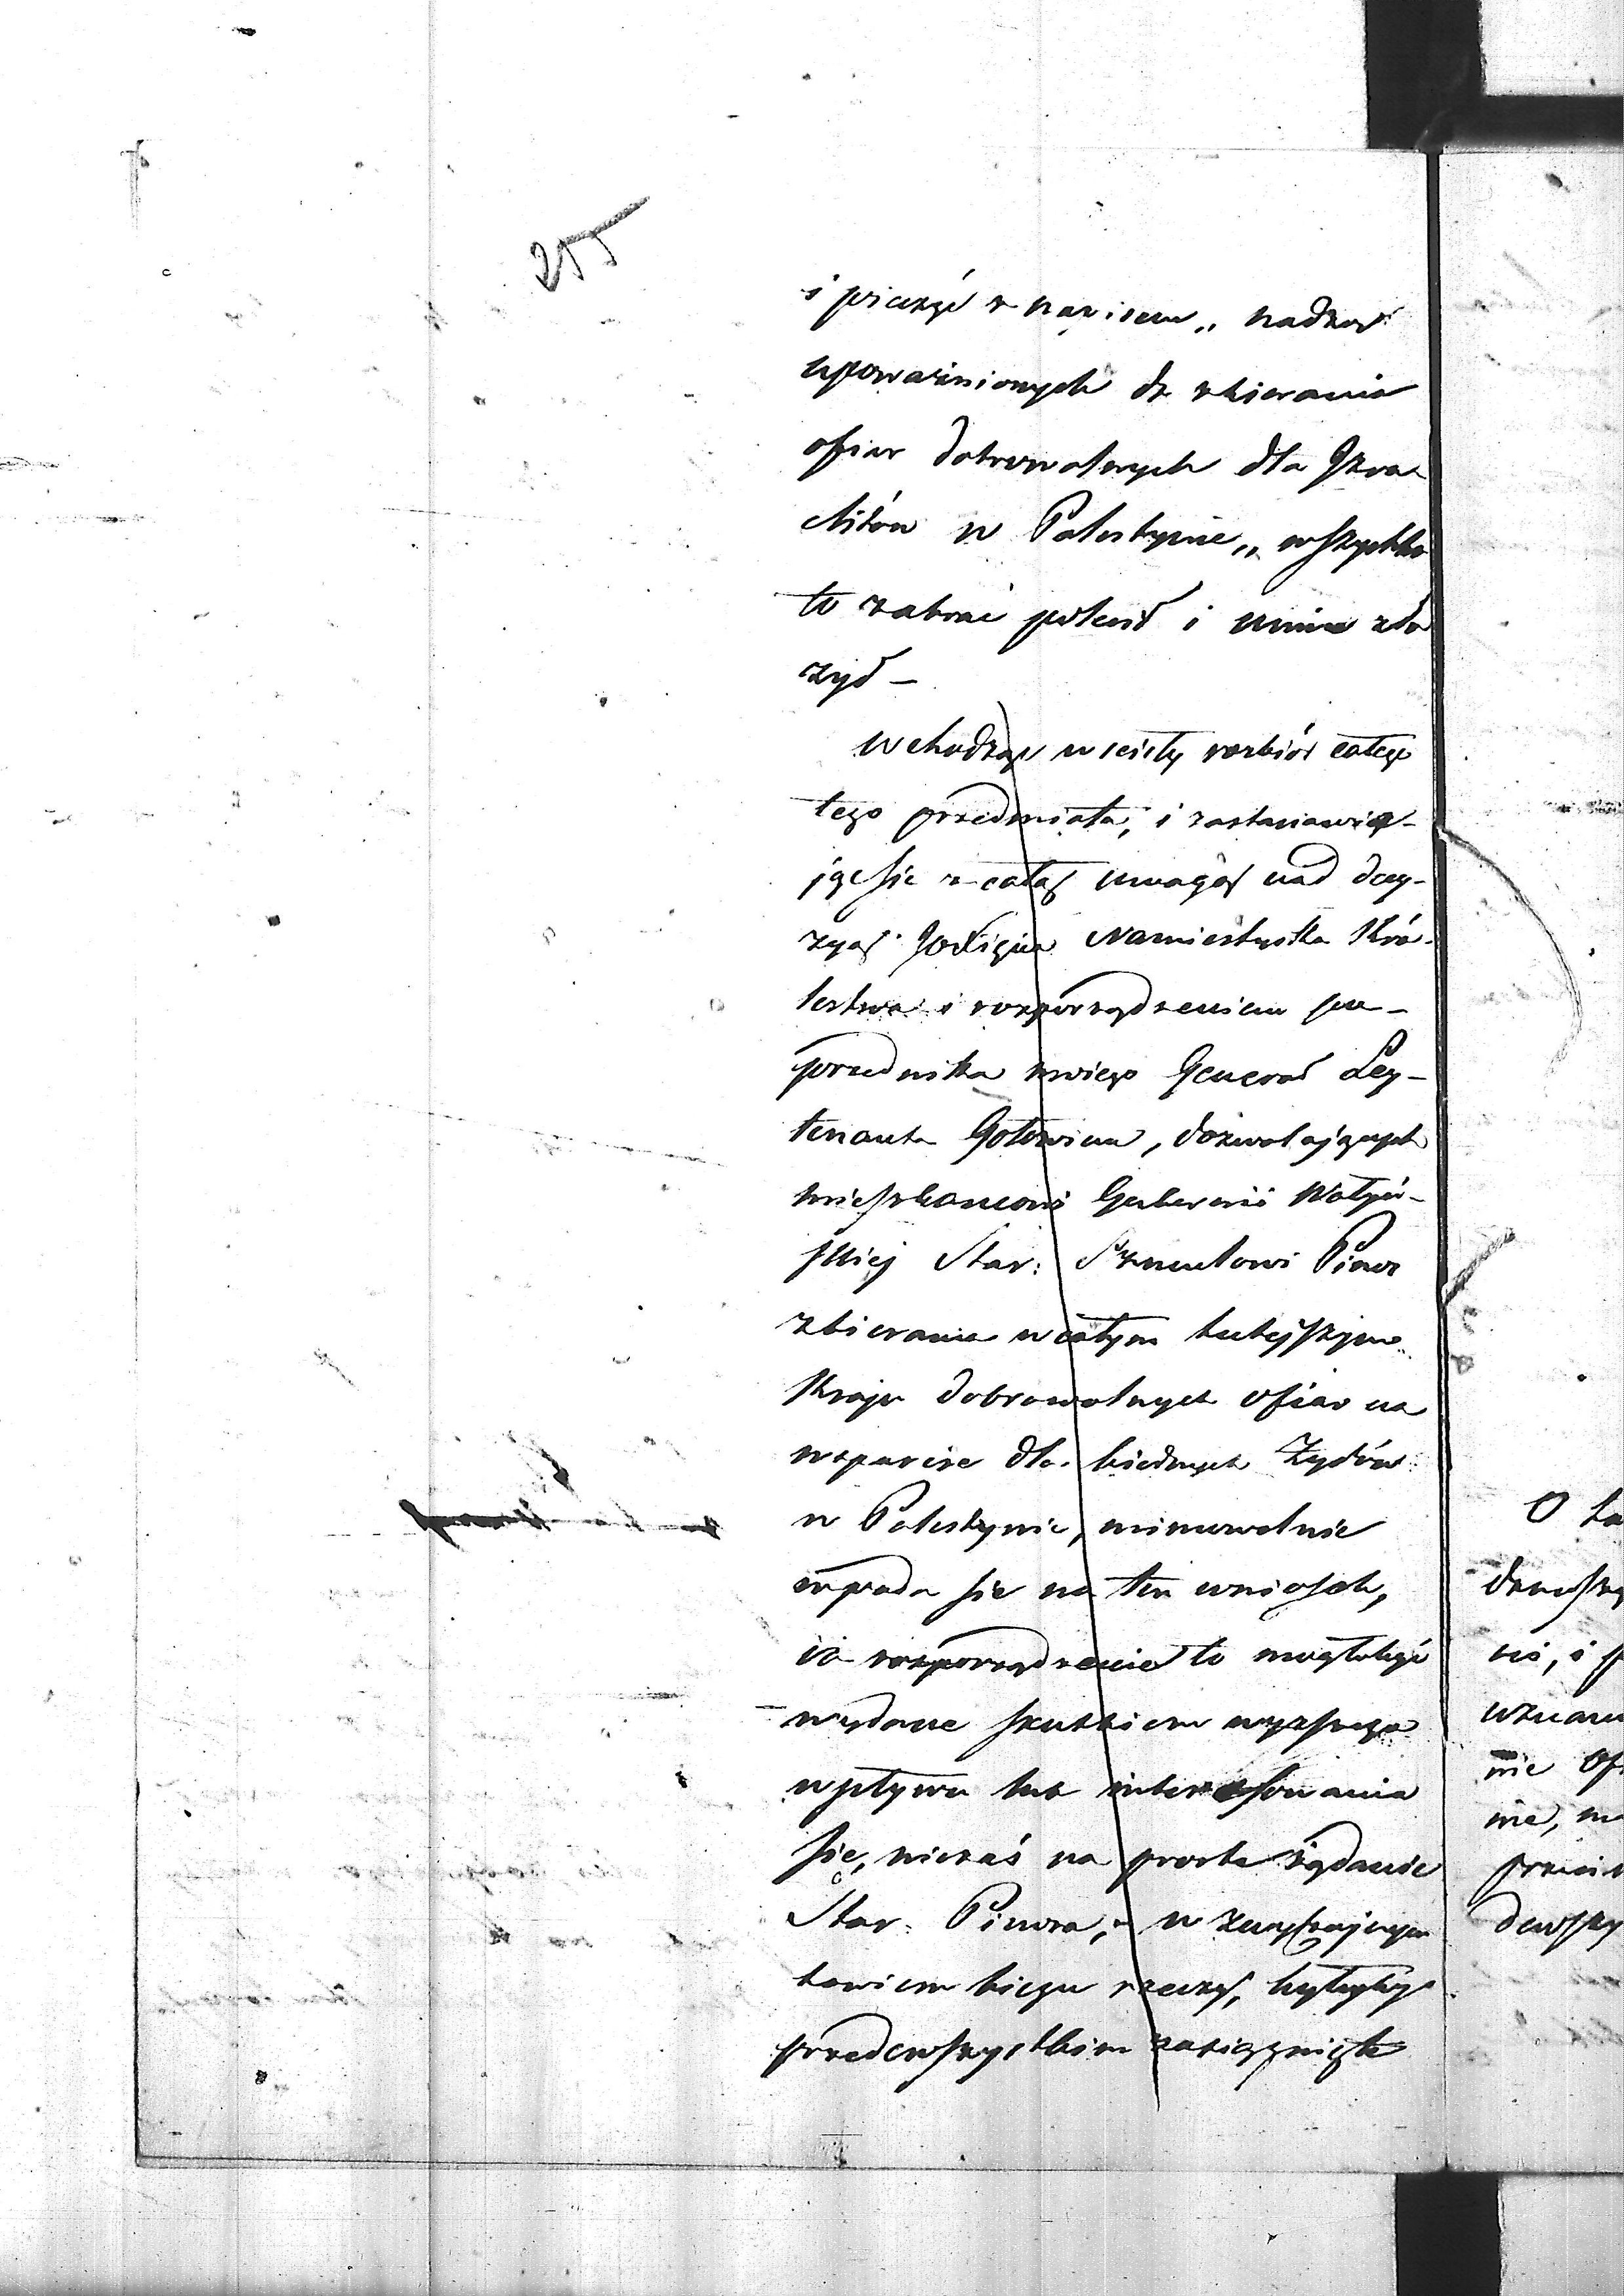 255
i pieczęć z napisem „nadzór
upoważnionych do zbierania
ofiar dobrowolnych dla Izra
elitów w Palestynie„ wszystko
to zabrać polecił i u mnie zło
żył –
Wchodząc w ścisły rozbiór całego
tego przedmiotu, i zastanawia-
jąc się z całą uwagą nad decy-
zyą JO Xięcia Namiestnika Kró-
lestwa i rozporządzeniem po-
przednika mojego Generał Ley-
tenanta Gołowina, dozwalających
mieszkańcowi Gubernii Wołyń-
skiej Star: Szmulowi
zbierania w całym tutejszym
Kraju dobrowolnych ofiar na
wsparcie dla biednych Żydów
w Palestynie, mimowolnie
wpada się na ten wniosek,
iż rozporządzenie to mogło być
wydane skutkiem wyższego
wpływu lub interesowania
się, nie zaś na proste żądanie
Star: w zwyczajnym
bowiem biegu rzeczy, byłyby
przedewszystkiem zasiągnięte
O
nie
nie,